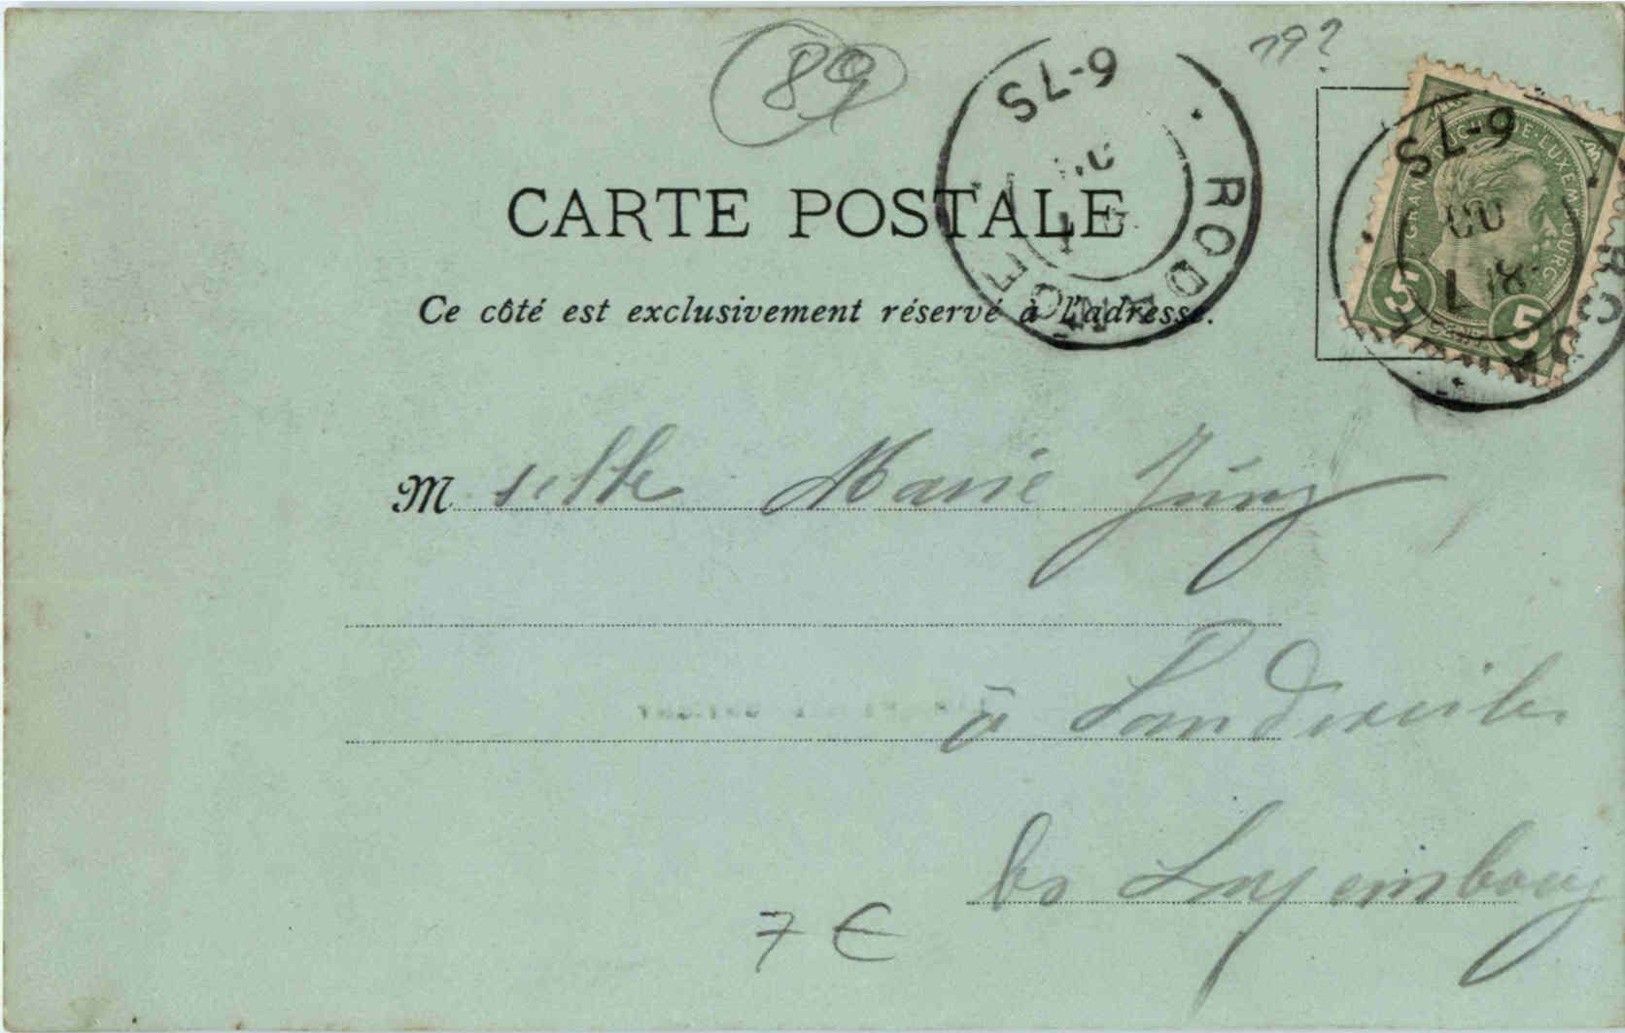 89
192
6-7S
RODANGE
GRAND DUCHÉ DE LUXEMBOURG
6-7S
5 CENT. 5
CARTE POSTALE
Ce côté est exclusivement réservé à l'adresse.
Mselle Marie Jung
à Sandweiler
bei Luxembourg
7 €